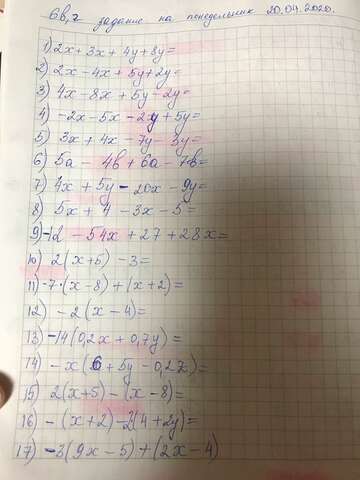 6в,г задание на понедельник 20.04.2020.
1) 2x + 3x + 4y + 8y =
2) 2x - 4x + 5y + 2y =
3) 4x - 8x + 5y - 2y =
4) -2x - 5x - 2y + 5y =
5) 3x + 4x - 7y - 3y =
6) 5a - 4b + 6a - 7b =
7) 4x + 5y - 20x - 9y =
8) 5x + 4 - 3x - 5 =
9) -12 - 54x + 27 + 28x =
10) 2(x+5) - 3 =
11) -7·(x-8) + (x+2) =
12) -2(x-4) =
13) -14(0,2x + 0,7y) =
14) -x(6 + 5y - 0,2z) =
15) 2(x+5) - (x-8) =
16) -(x+2) - 2(4+2y) =
17) -3(9x-5) + (2x-4)